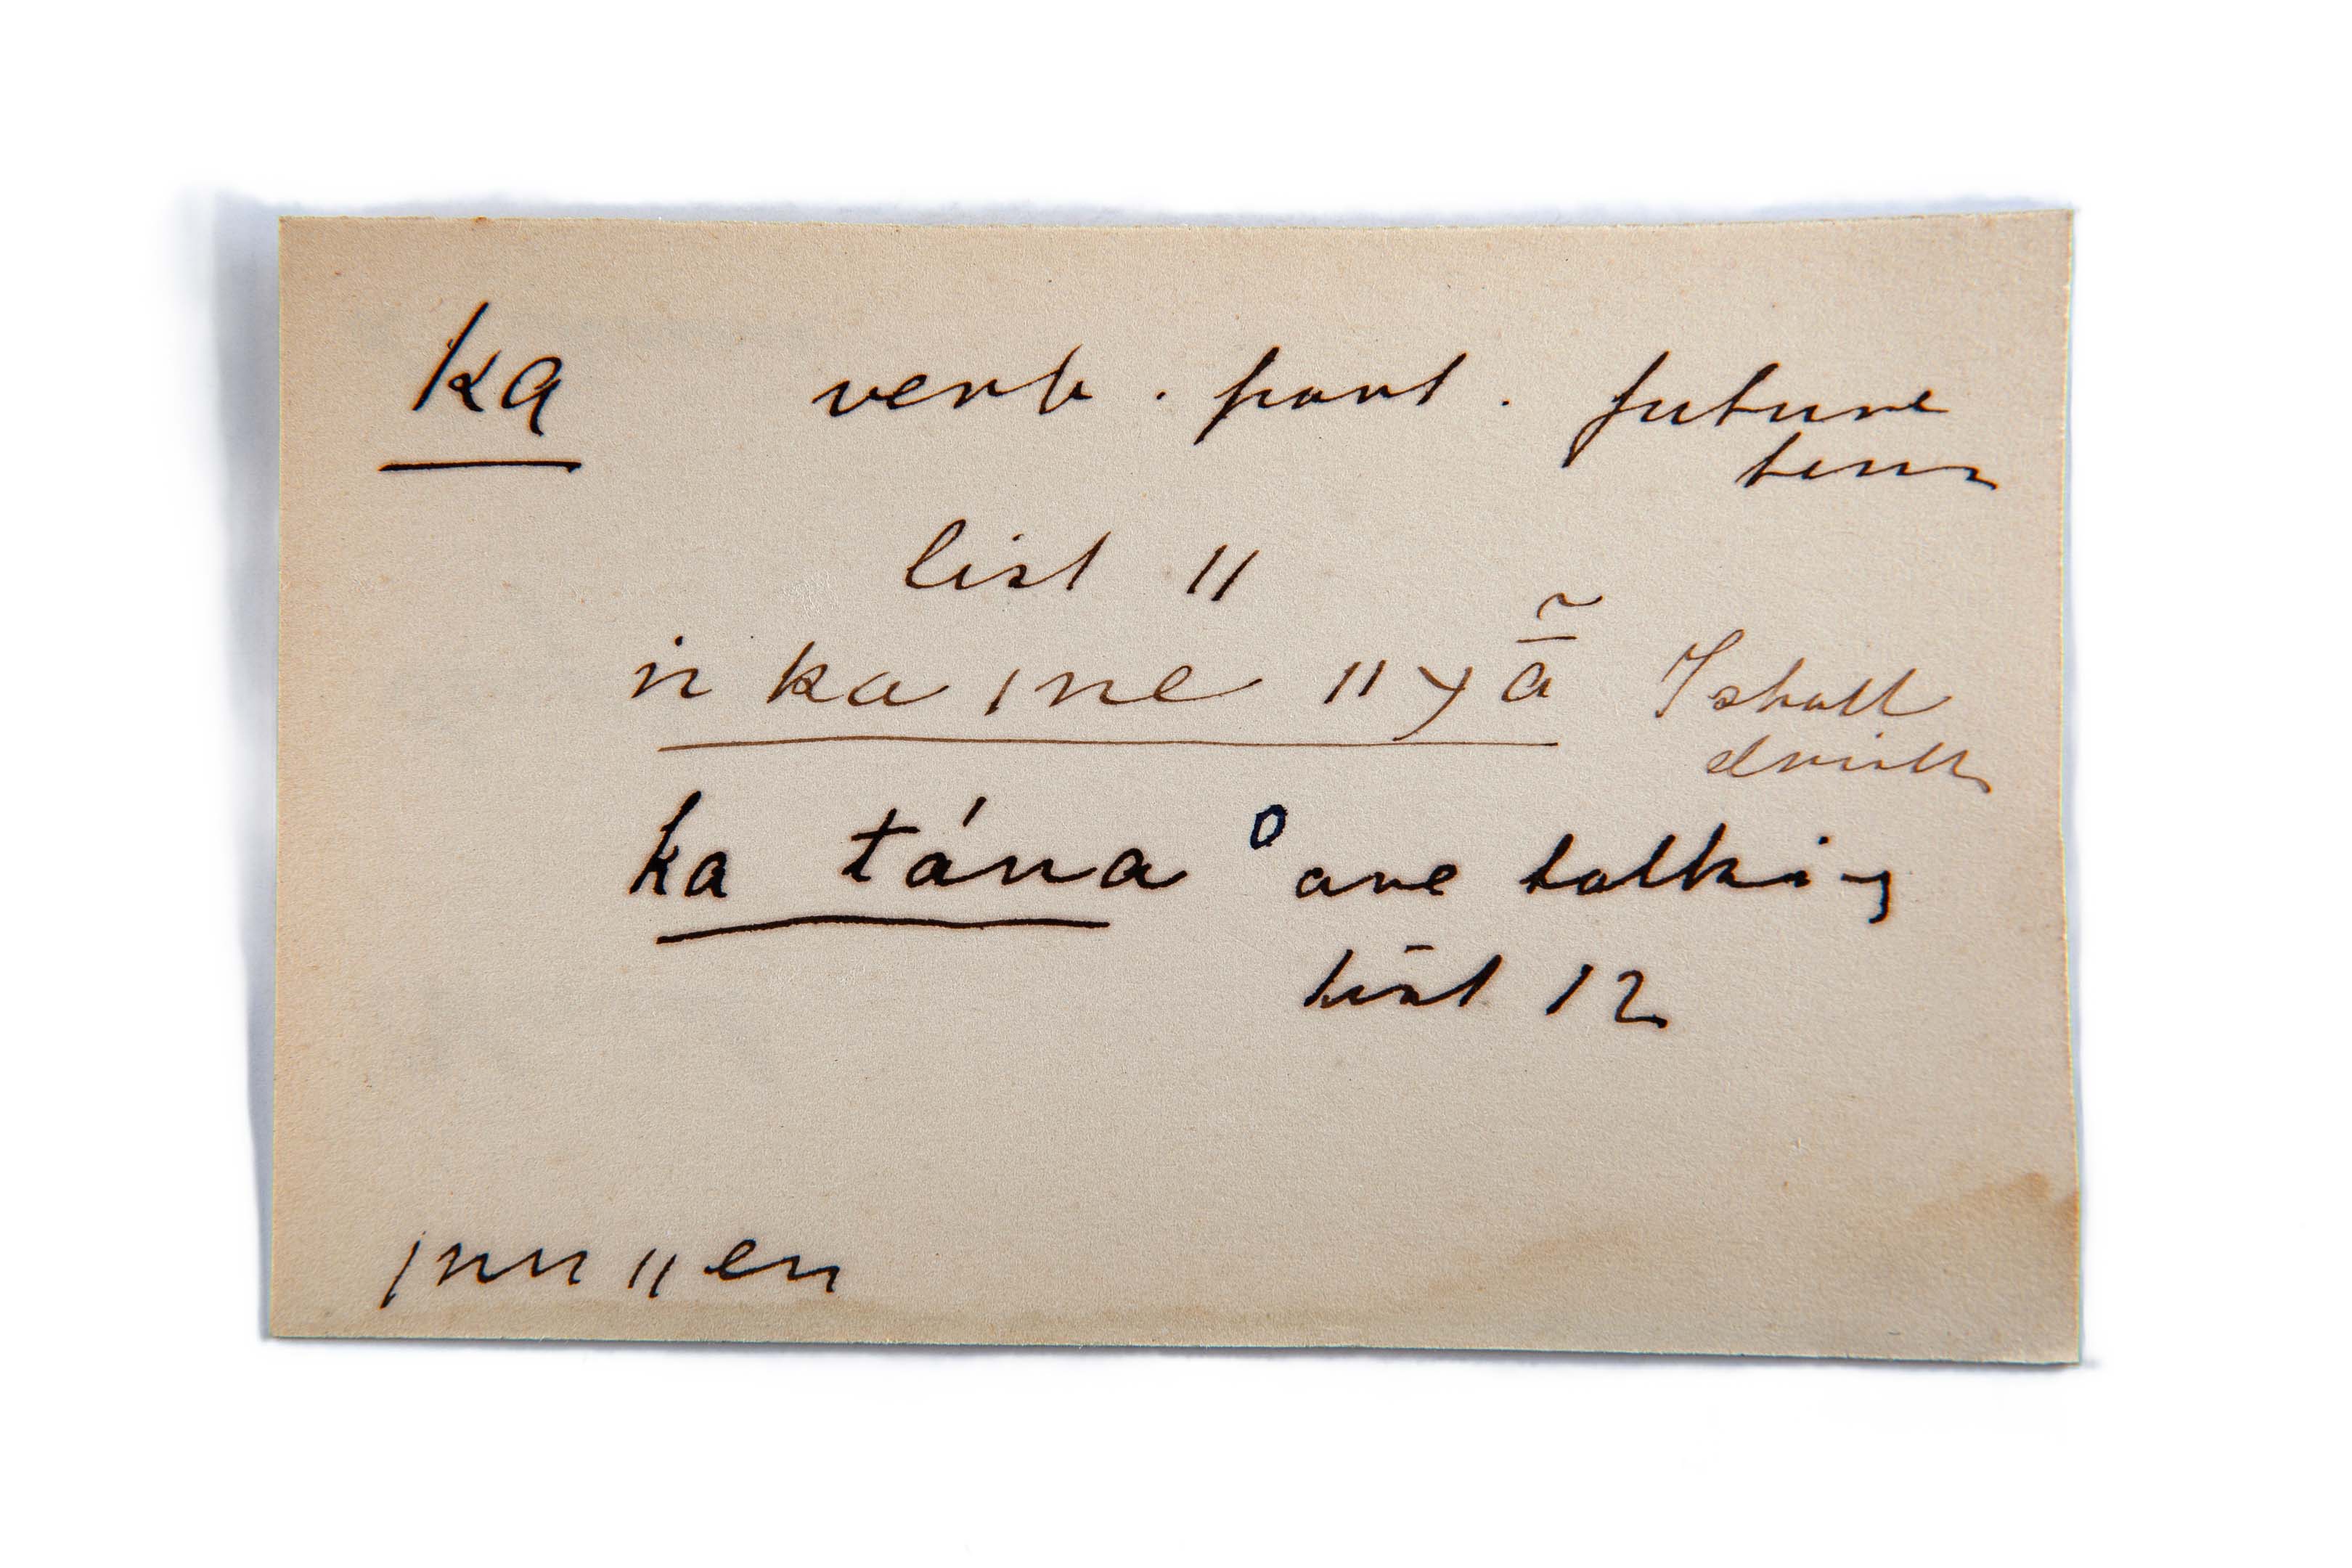 ka verb. part. future
tense
list 11
n ka /ne //xã̄ I shall
drink
ka tána ° are talking
list 12
/nu //en